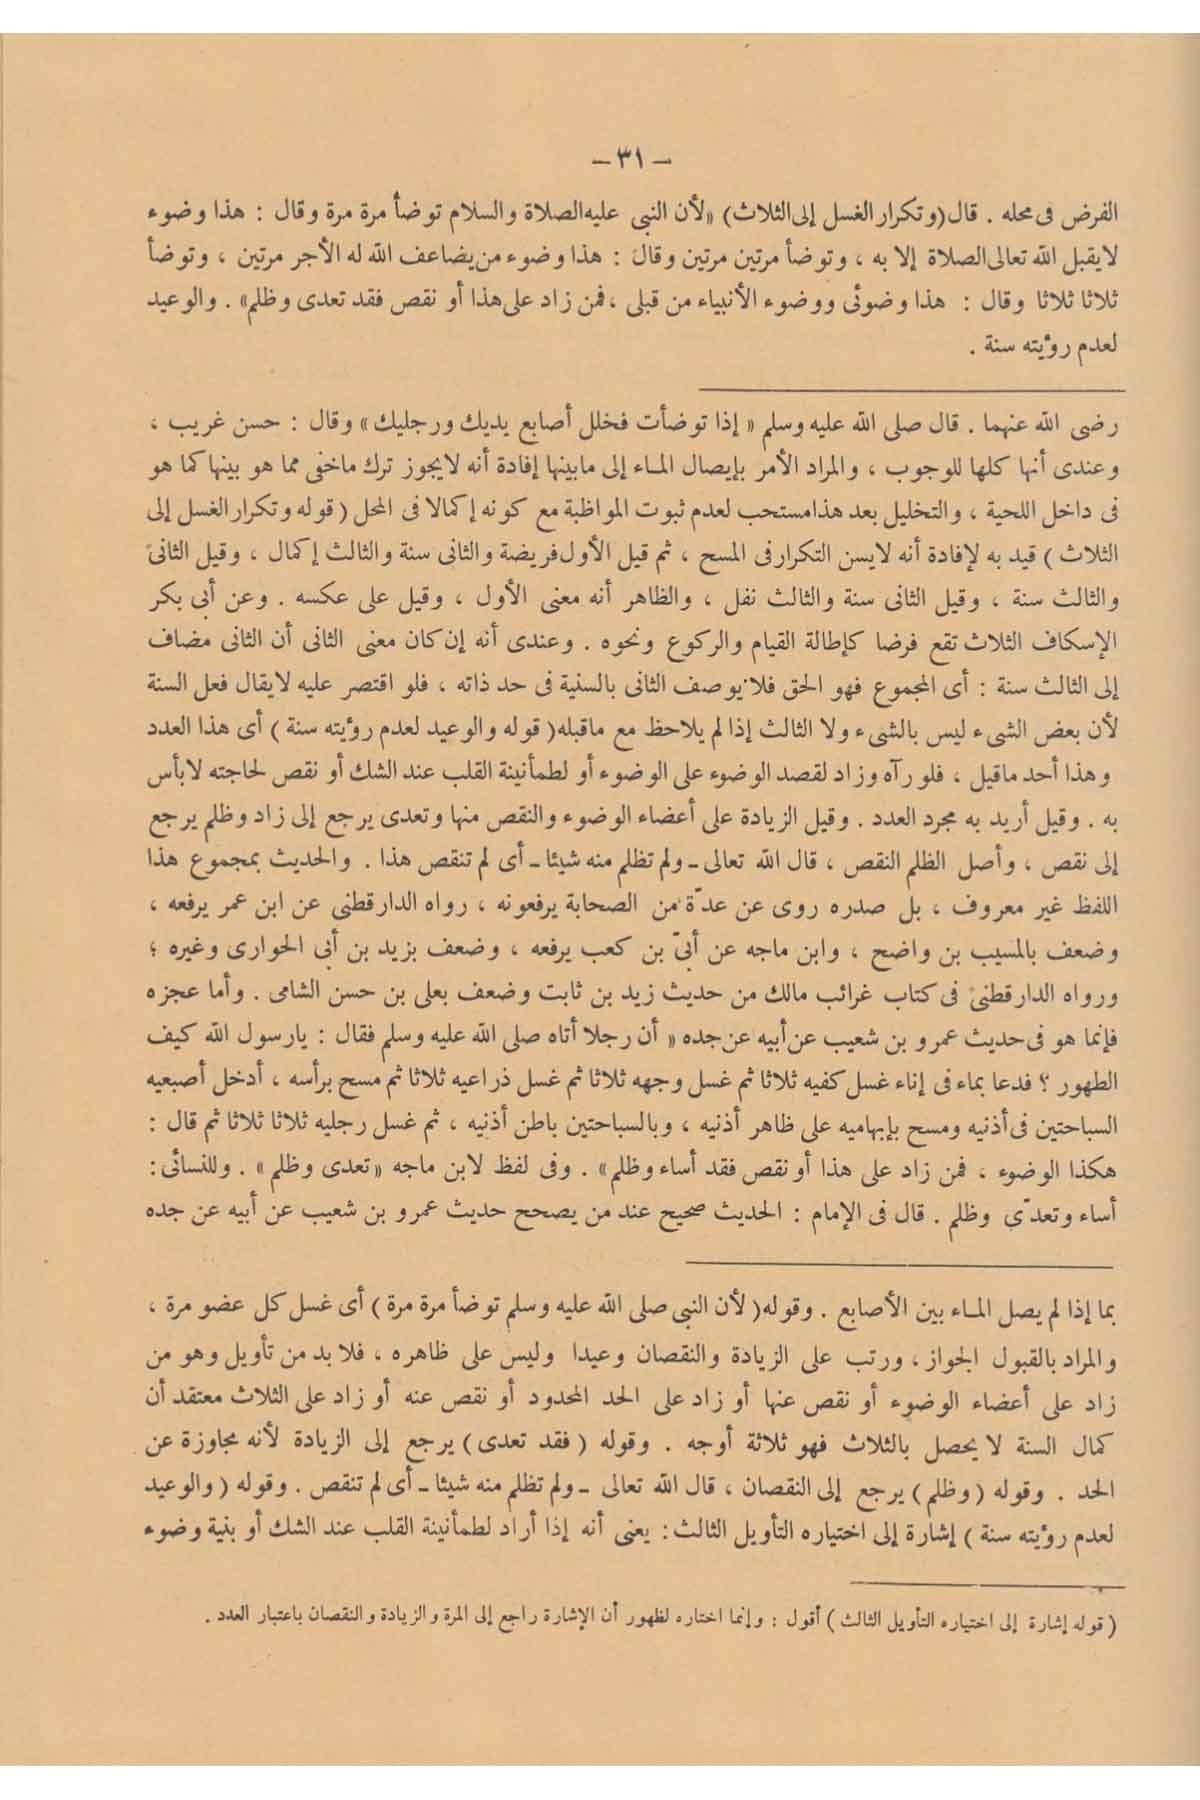 — ٣١ —
الفرض فى محله . قال (وتكرار الغسل إلى الثلاث) «لأن النبى عليه الصلاة والسلام توضأ مرة مرة وقال : هذا وضوء
لا يقبل الله تعالى الصلاة إلا به ، وتوضأ مرتين مرتين وقال : هذا وضوء من يضاعف الله له الأجر مرتين ، وتوضأ
ثلاثا ثلاثا وقال : هذا وضوئى ووضوء الأنبياء من قبلى ، فمن زاد على هذا أو نقص فقد تعدى وظلم» . والوعيد
لعدم رؤيته سنة .
رضى الله عنهما . قال صلى الله عليه وسلم « إذا توضأت فخلل أصابع يديك ورجليك» وقال : حسن غريب ،
وعندى أنها كلها للوجوب ، والمراد الأمر بإيصال الماء إلى مابينها إفادة أنه لا يجوز ترك ماخفى مما هو بينها كما هو
فى داخل اللحية ، والتخليل بعد هذا مستحب لعدم ثبوت المواظبة مع كونه إكمالا فى المحل (قوله وتكرار الغسل إلى
الثلاث ) قيد به لإفادة أنه لا يسن التكرار فى المسح ، ثم قيل الأول فريضة والثانى سنة والثالث إكمال ، وقيل الثانى
والثالث سنة ، وقيل الثانى سنة والثالث نفل ، والظاهر أنه معنى الأول ، وقيل على عكسه . وعن أبى بكر
الإسكاف الثلاث تقع فرضا كإطالة القيام والركوع ونحوه . وعندى أنه إن كان معنى الثانى أن الثانى مضاف
إلى الثالث سنة : أى المجموع فهو الحق فلا يوصف الثانى بالسنية فى حد ذاته ، فلو اقتصر عليه لا يقال فعل السنة
لأن بعض الشىء ليس بالشىء ولا الثالث إذا لم يلاحظ مع ماقبله (قوله والوعيد لعدم رؤيته سنة ) أى هذا العدد
وهذا أحد ماقيل ، فلو رآه وزاد لقصد الوضوء على الوضوء أو لطمأنينة القلب عند الشك أو نقص لحاجته لا بأس
به . وقيل أريد به مجرد العدد . وقيل الزيادة على أعضاء الوضوء والنقص منها وتعدى يرجع إلى زاد وظلم يرجع
إلى نقص ، وأصل الظلم النقص ، قال الله تعالى ـ ولم تظلم منه شيئا ـ أى لم تنقص هذا . والحديث بمجموع هذا
اللفظ غير معروف ، بل صدره روى عن عدّة من الصحابة يرفعونه ، رواه الدارقطنى عن ابن عمر يرفعه ،
وضعف بالمسيب بن واضح ، وابن ماجه عن أبىّ بن كعب يرفعه ، وضعف بزيد بن أبى الحوارى وغيره ؛
ورواه الدارقطنى فى كتاب غرائب مالك من حديث زيد بن ثابت وضعف بعلى بن حسن الشامى . وأما عجزه
فإنما هو فى حديث عمرو بن شعيب عن أبيه عن جده « أن رجلا أتاه صلى الله عليه وسلم فقال : يارسول الله كيف
الطهور ؟ فدعا بماء فى إناء غسل كفيه ثلاثا ثم غسل وجهه ثلاثا ثم غسل ذراعيه ثلاثا ثم مسح برأسه ، أدخل أصبعيه
السباحتين فى أذنيه ومسح بإبهاميه على ظاهر أذنيه ، وبالسباحتين باطن أذنيه ، ثم غسل رجليه ثلاثا ثلاثا ثم قال :
هكذا الوضوء ، فمن زاد على هذا أو نقص فقد أساء وظلم» . وفى لفظ لابن ماجه «تعدى وظلم» . وللنسائى :
أساء وتعدّى وظلم . قال فى الإمام : الحديث صحيح عند من يصحح حديث عمرو بن شعيب عن أبيه عن جده
بما إذا لم يصل الماء بين الأصابع . وقوله ( لأن النبى صلى الله عليه وسلم توضأ مرة مرة ) أى غسل كل عضو مرة ،
والمراد بالقبول الجواز ، ورتب على الزيادة والنقصان وعيدا وليس على ظاهره ، فلا بد من تأويل وهو من
زاد على أعضاء الوضوء أو نقص عنها أو زاد على الحد المحدود أو نقص عنه أو زاد على الثلاث معتقد أن
كمال السنة لا يحصل بالثلاث فهو ثلاثة أوجه . وقوله ( فقد تعدى ) يرجع إلى الزيادة لأنه مجاوزة عن
الحد . وقوله ( وظلم ) يرجع إلى النقصان ، قال الله تعالى ـ ولم تظلم منه شيئا ـ أى لم تنقص . وقوله ( والوعيد
لعدم رؤيته سنة ) إشارة إلى اختياره التأويل الثالث : يعنى أنه إذا أراد لطمأنينة القلب عند الشك أو بنية وضوء
( قوله إشارة إلى اختياره التأويل الثالث ) أقول : وإنما اختاره لظهور أن الإشارة راجع إلى المرة والزيادة والنقصان باعتبار العدد .